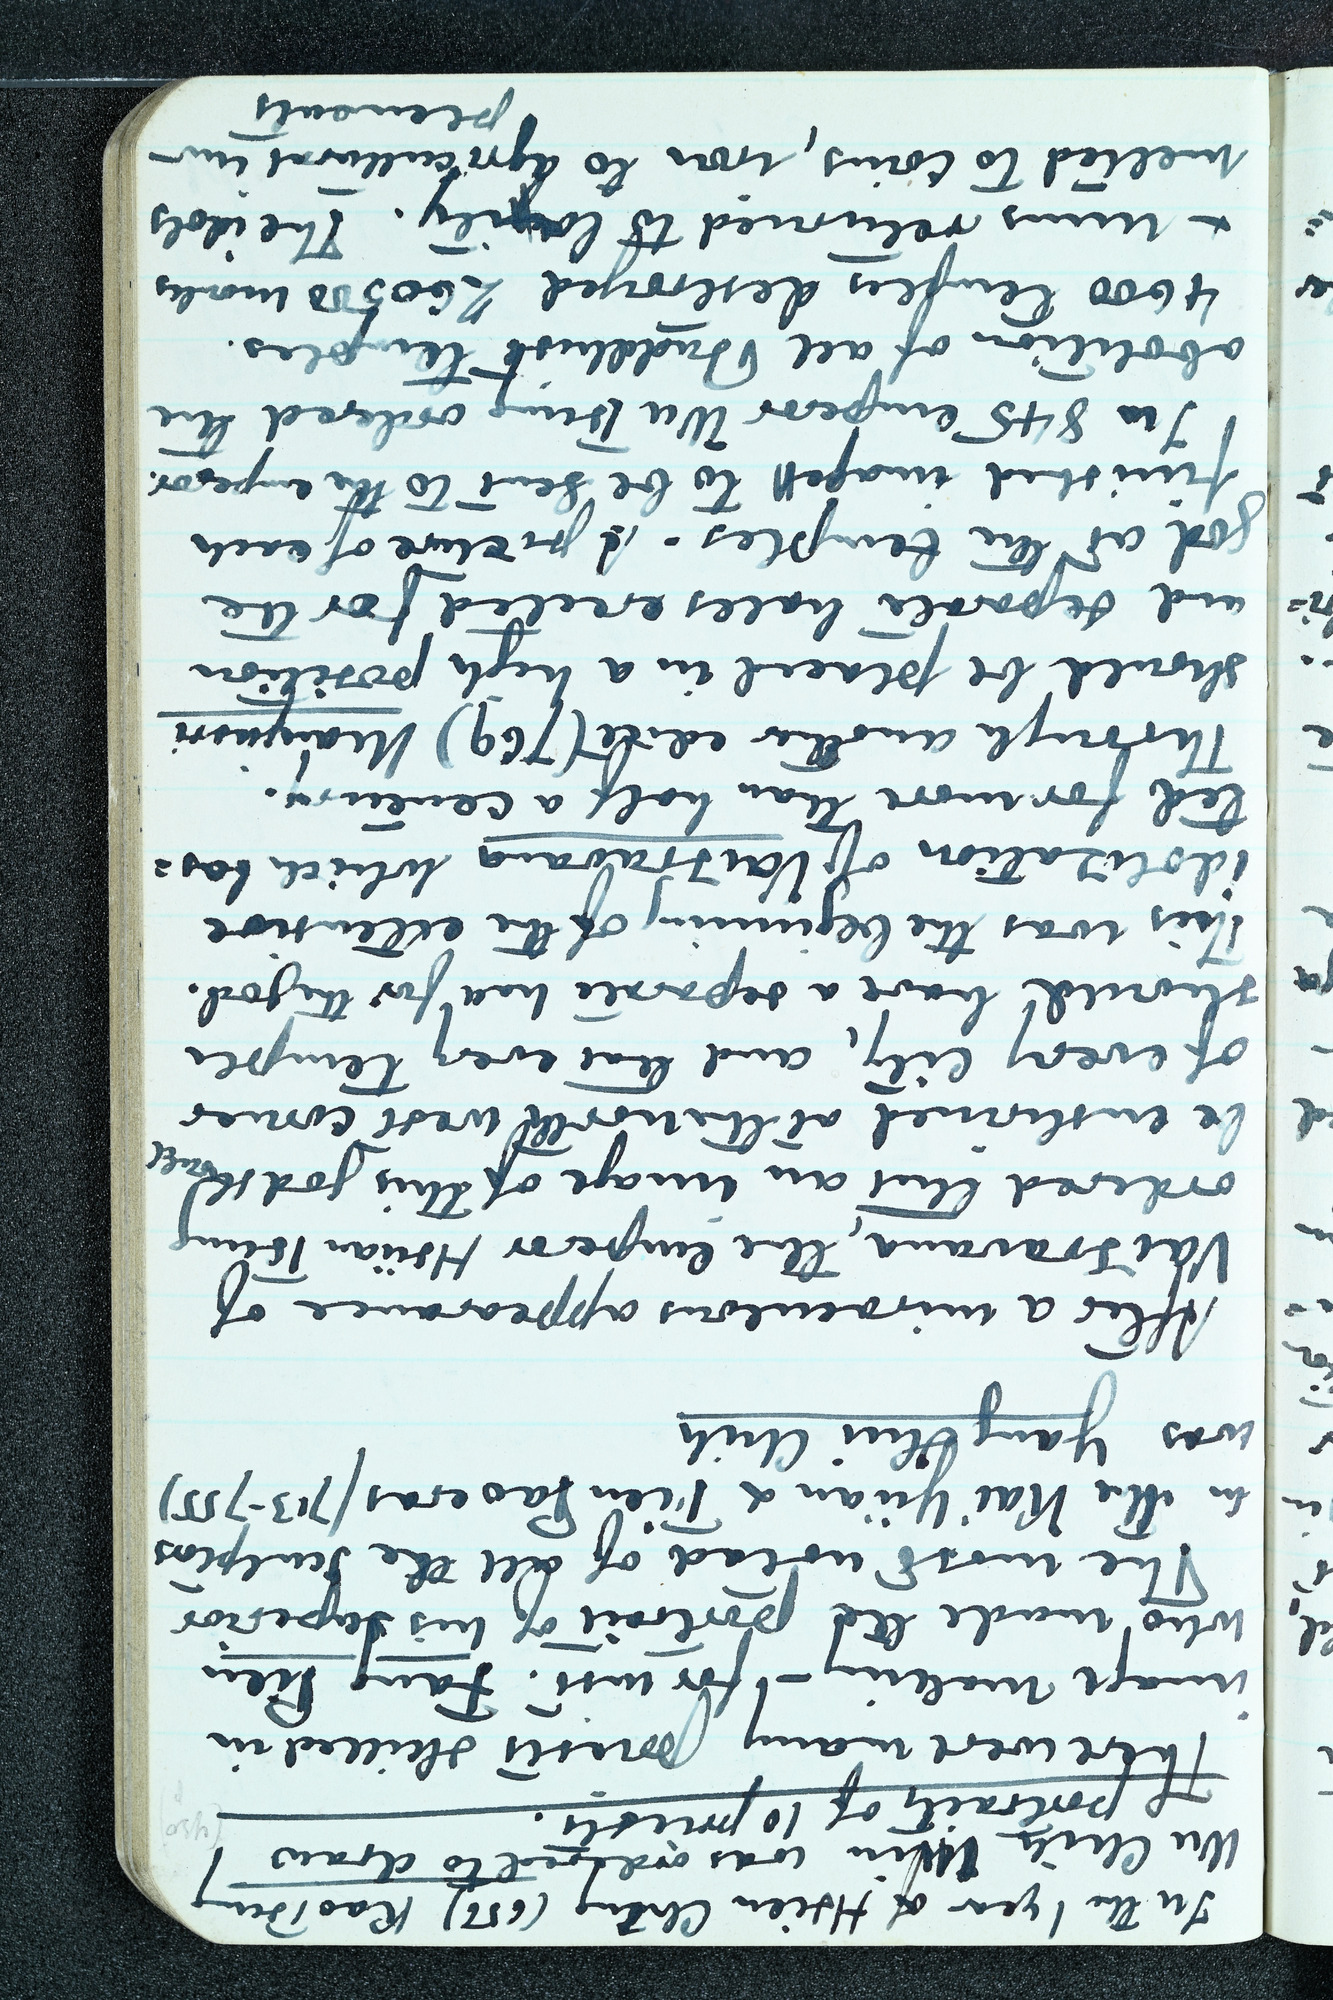 In the 1 year of Hsien Ching (656) Kao Tsung
Wu Chih Min was ordered to draw
the portraits of 10 priests.
There were many priests skilled in
image making - for inst. Fang Pien
who made the portrait of his superior
The most noted of all the sculptors
in the Kai Yüan & Tien Pao eras (713-755)
was Yang Hui Chih
After a miraculous appearance of
Vaisravana, the emperor Hsüan Tsung
ordered that an image of this god should
be enshrined at the north west corner
of every city, and that every temple
should have a separate hall for the god.
This was the beginning of the extensive
idolization of Vaisravana which las=
ted for more than half a century.
Through another edict (769) Manjusri
should be placed in a high position
and separate halls erected for the
god at the temples. - A picture of each
finished image to be sent to the emperor.
In 845 emperor Wu Tsung ordered the
abolition of all Buddhist temples.
4600 temples destroyed 260500 monks
+ nuns returned to laity. The idols
melted to coins, iron to agricultural im-
plements